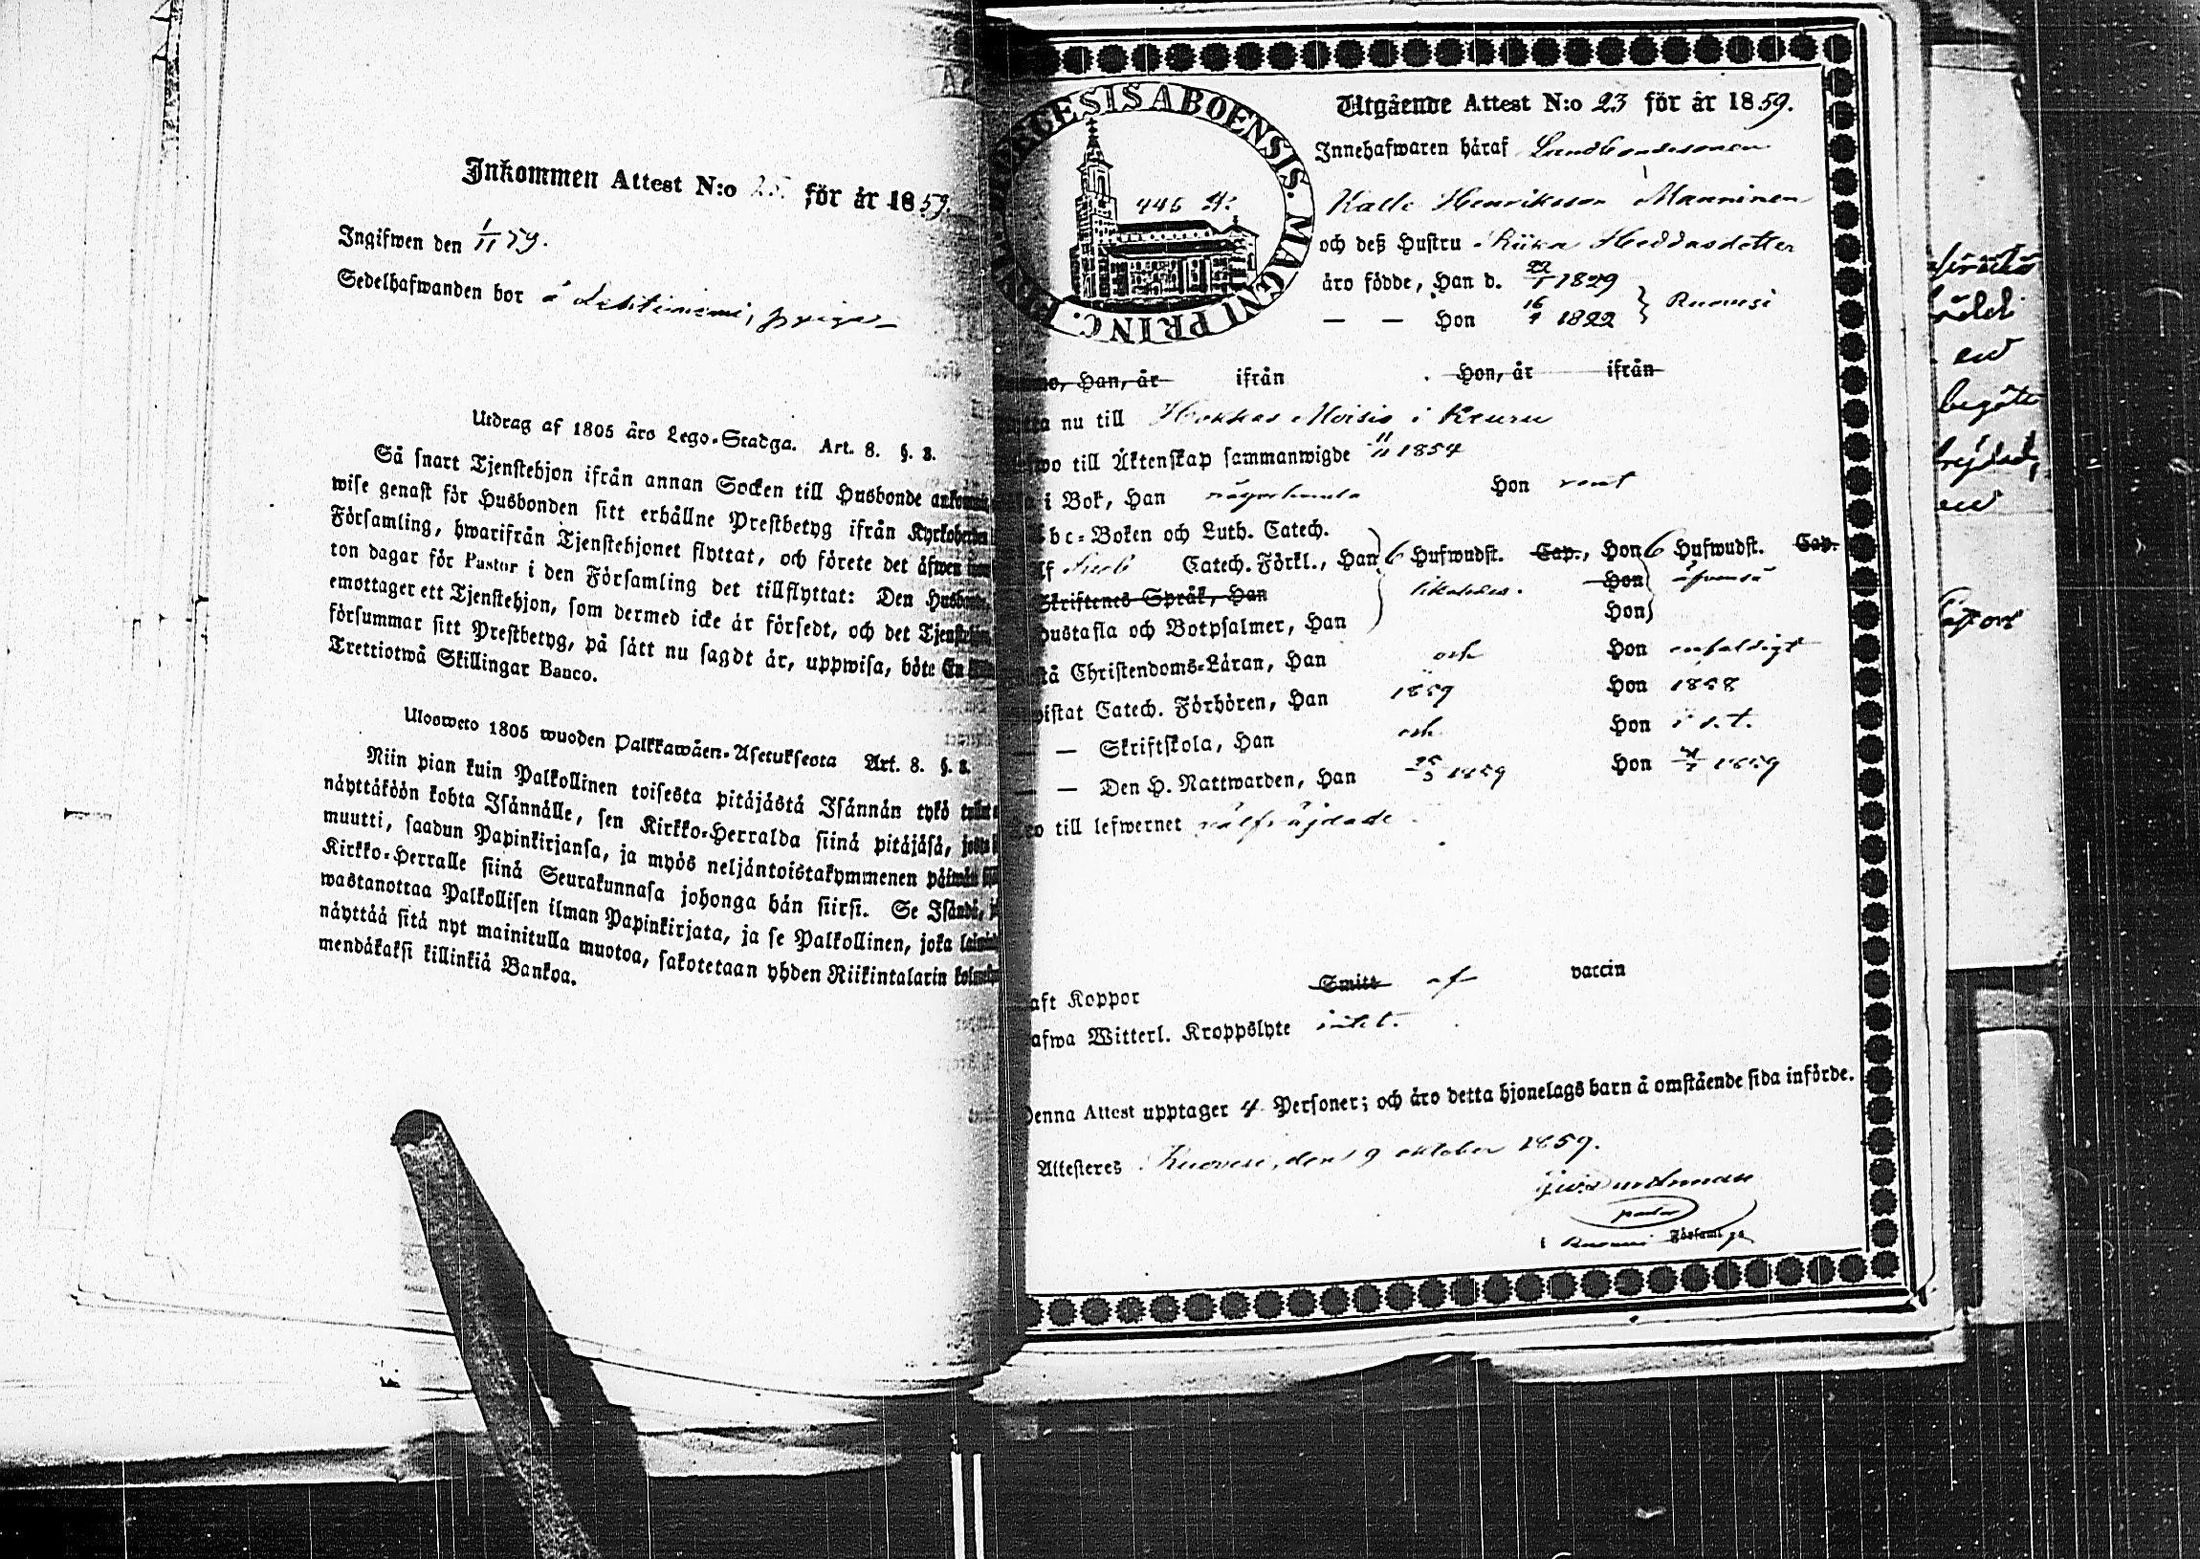 Inkommen Attest N:o 25. för år 1859.
Ingifwen den 1/11 59.
Sedelhafwanden bor å
Utdrag af 1805 års Lego-Stadga. Art. 8. §. 3.
Så snart Tjenstehjon ifrån annan Socken till Husbonde
wise genast för Husbonden sitt erhållne Prestbetyg ifrån
Församling, hwarifrån Tjenstehjonet flyttat, och förete det åfwen
ton dagar för Pastor i den Församling det tillflyttat: Den
emottager ett Tjenstehjon, som dermed icke är försedt, och det
försummar sitt Prestbetyg, på sätt nu sagdt är, uppwisa, böte En
Trettiotwå Skillingar Banco.
Ulosweto 1805 wuoden Palkkawäen-Asetuksesta Art. 8. §. 3.
Niin pian kuin Palkollinen toisesta pitäjästä Isännän tykö
näyttäköön kohta Isännälle, sen Kirkko-Herralda siinä pitäjäsä,
muutti, saadun Papinkirjansa, ja myös neljäntoistakymmenen
Kirkko-Herralle siinä Seurakunnasa johonga hän siirsi. Se Isändä,
wastanottaa Palkollisen ilman Papinkirjata, ja se Palkollinen, joka
näyttää sitä nyt mainitulla muotoa, sakotetaan yhden Riikintalarin
mendäkaksi killinkiä Bankoa.
Utgående Attest N:o 23 för år 1859.
ABOENSIS. MAGNI PRINC.
446
Innehafwaren häraf Landbondesonen
Kalle Henriksson Manninen
och deß Hustru Heddasdotter
äro födde, Han d. 22/1 1829
— — Hon 16/9 1822 } Ruovesi
Han, år ifrån Hon, år ifrån
nu till Moisio i Keuru
till Äktenskap sammanwigde 11/11 1854
i Bok, Han någorlunda Hon rent
bc-Boken och Luth. Catech.
Catech. Förkl., Han 6 Hufwudst. Cap., Hon 6 Hufwudst. Cap.
Skriftenes Språk, Han likaledes. Hon äfvenså
Hustafla och Botpsalmer, Han Hon
Christendoms-Läran, Han och Hon enfaldigt
Catech. Förhören, Han 1859 Hon 1858
— — Skriftskola, Han och Hon
— — Den H. Nattwarden, Han 25/3 1859 Hon 1859
till lefwernet välfräjdade.
aft Koppor Smitt af vaccin
afwa Witterl. Kroppslyte intet.
Denna Attest upptager 4 Personer; och äro detta hjonelags barn å omstående sida införde.
Attesteres Ruovesi, den 9 oktober 1859.
pastor
i Ruovesi